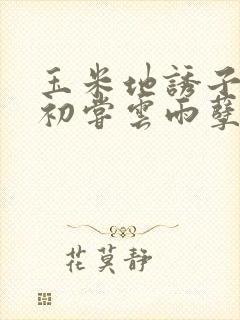 玉米地誘子
初嘗雲雨孽
花莫靜